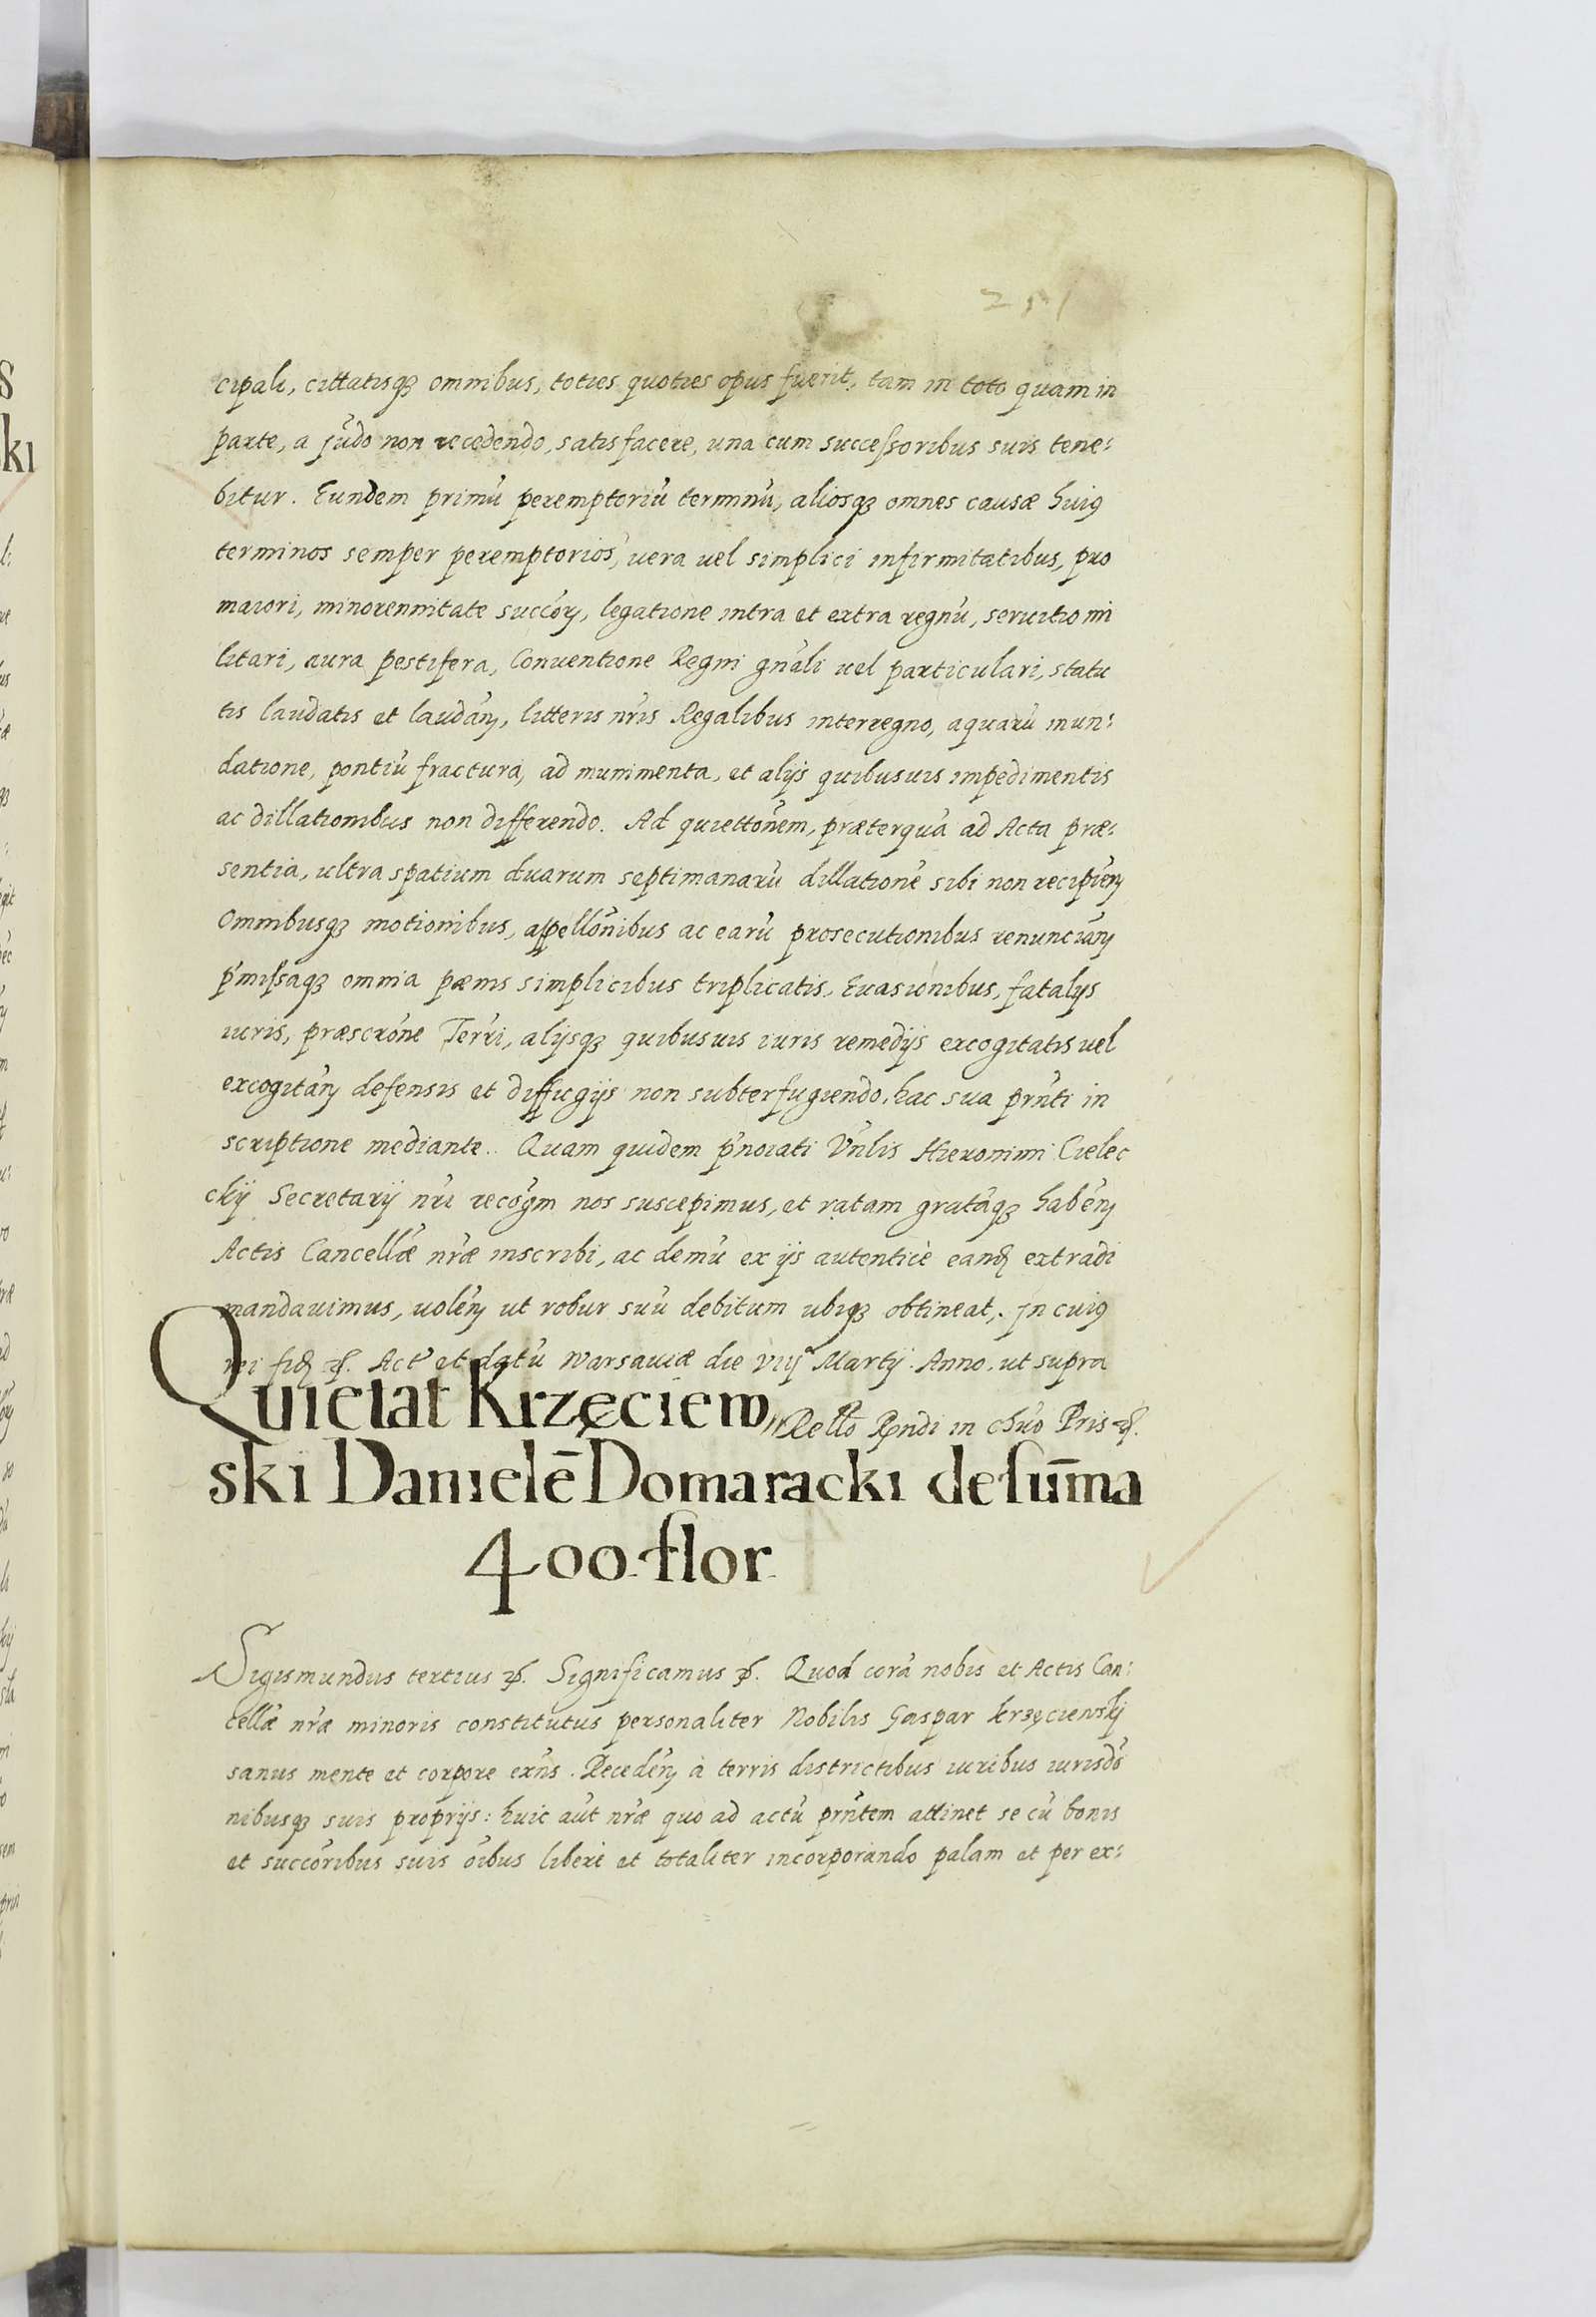 251
cipali, cittatisqꝫ omnibus, toties quoties opus fuerit, tam in toto quam in
parte, a judo non recedendo, satisfacere, una cum successoribus suis tene:
bitur. Eundem primū peremptoriū terminū, aliosqꝫ omnes causæ huiꝰ
terminos semper peremptorios, uera uel simplici infirmitatibus, pro
maiori, minorennitate succorꝫ, legatione intra et extra regnū, seruitio mi
litari, aura pestifera, Conuentione Regni gnāli uel particulari, statu
tis laudatis et laudān, litteris nr̄is Regalibus interregno, aquarū inun:
datione, pontiū fractura, ad munimenta, et alijs quibusuis impedimentis
ac dillationibus non differendo. Ad quiettōnem, præterquā ad Acta præ:
sentia, ultra spatium duarum septimanarū dillationē sibi non recipien̄
Omnibusqꝫ motionibus, appellōnibus ac earū prosecutionibus renuncian̄
p̄missaqꝫ omnia pœnis simplicibus triplicatis, Euasionibus, fatalijs
iuris, præscrōne Terri, alijsqꝫ quibusuis iuris remedijs excogitatis uel
excogitān defensis et diffugijs non subterfugiendo, hac sua prn̄ti in
scriptione mediante. Quam quidem p̄noiati Vn̄lis Hieronimi Cielec
ckij Secretarij nr̄i recogm̄ nos suscepimus, et ratam gratāqꝫ haben̄
Actis Cancellæ nr̄æ inscribi, ac demū ex ijs autenticè eand̄ extradi
mandauimus, uolen̄ ut robur suū debitum ubiqꝫ obtineat. Jn cuiꝰ
rei fid̄ ꝛc. Act̄ et datū Warsauiæ die viij Martij Anno. ut supra
Rello Rn̄di in chr̄o Pris ꝛc.
Quietat Krzęciew
ski Danielē Domaracki de sum̄a
400. flor
Sigismundus tertius ꝛc. Significamus ꝛc. Quod corā nobis et Actis Can:
cellæ nr̄æ minoris constitutus personaliter Nobilis Gaspar Krzęciewskij
sanus mente et corpore exn̄s. Receden̄ à terris districtibus iuribus iurisdō
nibusqꝫ suis proprijs: huic aūt nr̄æ quo ad actū prn̄tem attinet se cū bonis
et succoribus suis oībus liberè et totaliter incorporando palam et per ex: